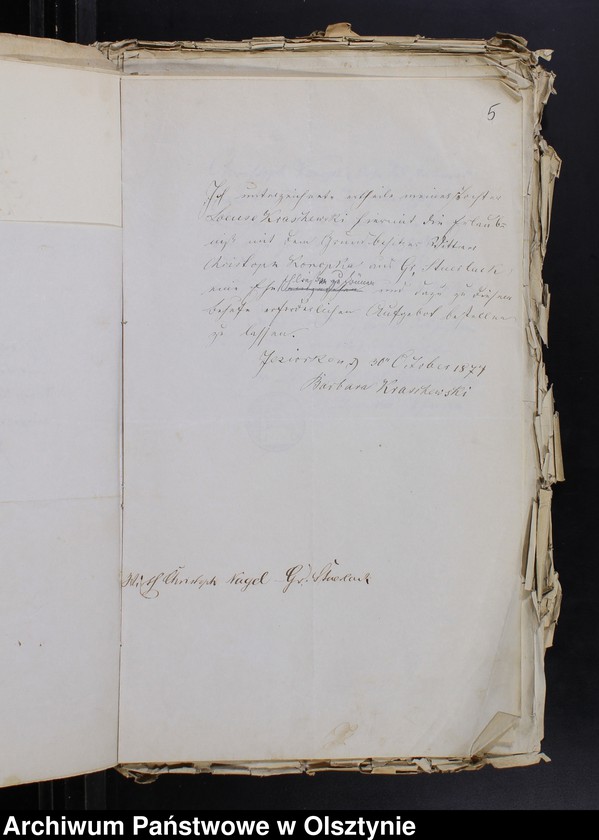 5
Ich unterzeichnete ertheile meiner Tochter
Louise Kraschewski hiermit die Erlaub-
niß mit dem Grundbesitzer Wittwer
Christoph Konopka aus Gr. Stuerlack
eine Ehe schließen zu können und dazu zu diesem
Behufe erforderlichen Aufgebot bestellen
zu lassen.
Jesiorken, d 30 October 1874
Barbara Kraschewski
Wirth Christoph Nagel Gr. Stuerlack
Archiwum Państwowe w Olsztynie